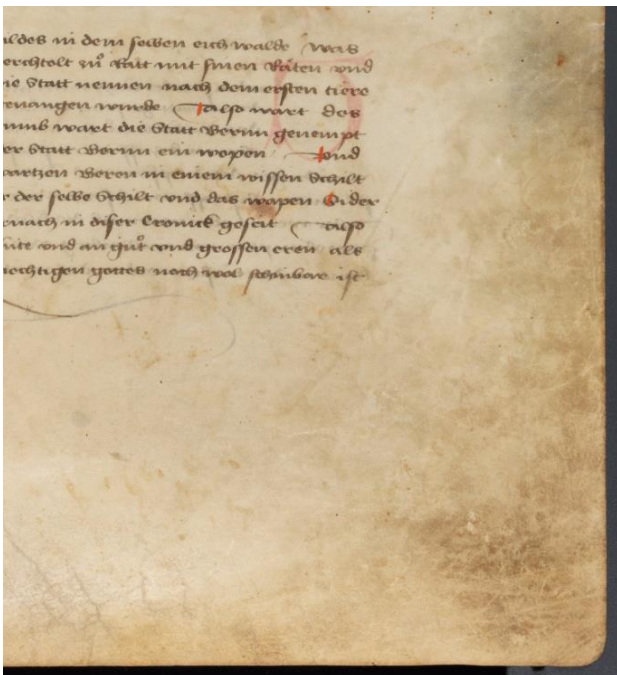 ldes in dem selben eichwalde was
erchtolt zů Ratt mit sinen Räten vnd
ie Statt nennen nach dem ersten tiere
geuangen wurde also wart des
umb wart die Statt Bernn genempt
er Statt Bernn ein wopen vnd
wartzen Beren in einem wissen Schilt
r der selbe Schilt vnd das wapen Sider
rnach in diser Cronick geseit also
lüte vnd an gůt vnd grossen eren als
mechtigen gottes noch wol schinbar ist